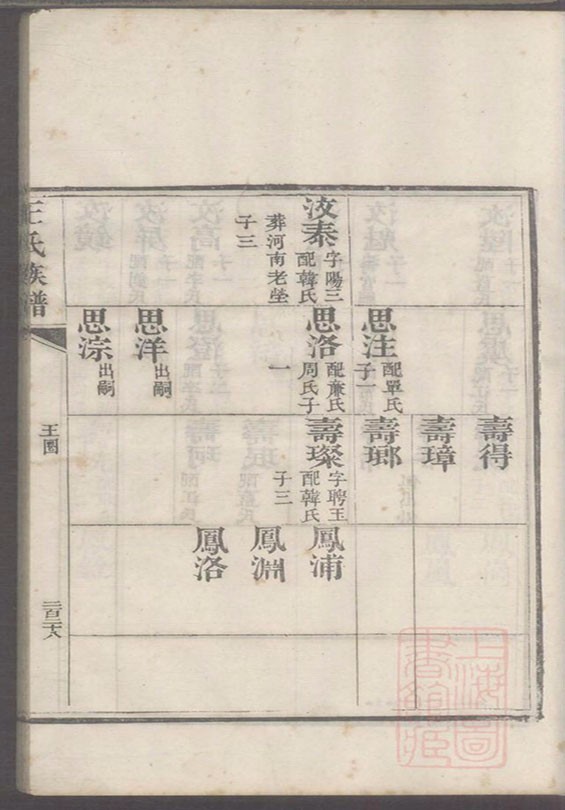 汝泰
字陽三
配韓氏
葬河南老塋
子三
思注
配單氏
子一
思洛
配蕭氏
周氏子
一
思洋
出嗣
思淙
出嗣
壽得
壽璋
壽瑯
壽璨
字聘玉
配韓氏
子三
鳳浦
鳳淵
鳳洛
王氏族譜
上海圖書館藏